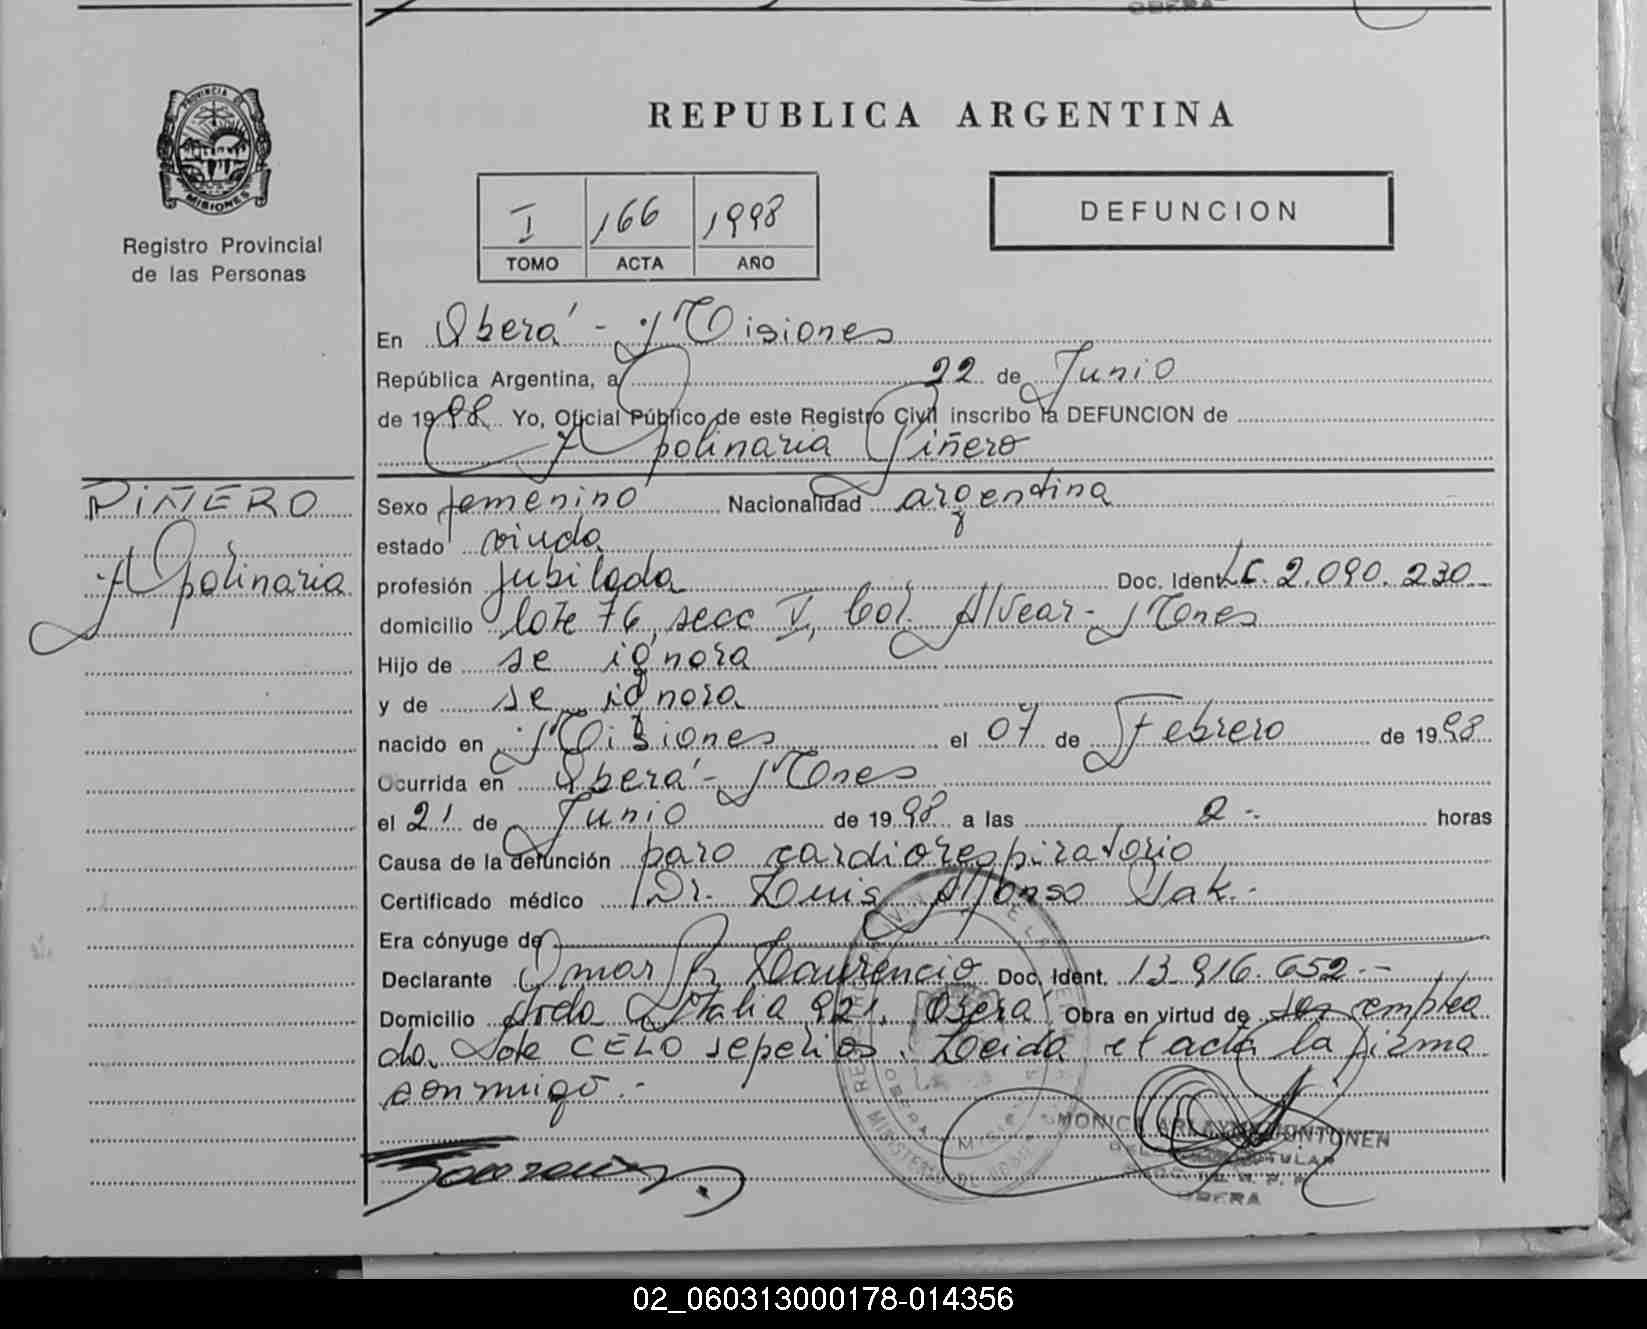 OBERA
PROVINCIA DE
MISIONES
Registro Provincial
de las Personas
REPUBLICA ARGENTINA
I 166 1998
TOMO ACTA AÑO
DEFUNCION
En Oberá - Misiones
República Argentina, a 22 de Junio
de 1998 Yo, Oficial Público de este Registro Civil inscribo la DEFUNCION de
Apolinaria Piñero
PIÑERO
Apolinaria
Sexo femenino Nacionalidad argentina
estado viuda
profesión jubilada Doc. Ident. LC. 2.090.230
domicilio lote 76, secc V, Col. Alvear - Mones
Hijo de se ignora
y de se ignora
nacido en Misiones el 07 de Febrero de 1998
Ocurrida en Oberá - Mones
el 21 de Junio de 1998 a las 2 - horas
Causa de la defunción paro cardiorespiratorio
Certificado médico Dr. Luis Alfonso Sak.-
Era cónyuge de
Declarante Omar R. Laurencio Doc. Ident. 13.916.652.-
Domicilio Avda Italia 921, Oberá Obra en virtud de ser emplea
do, de CELO sepelios. Leida el acta la firma
conmigo.-
MONICA
TITULAR
OBERA
02_060313000178-014356